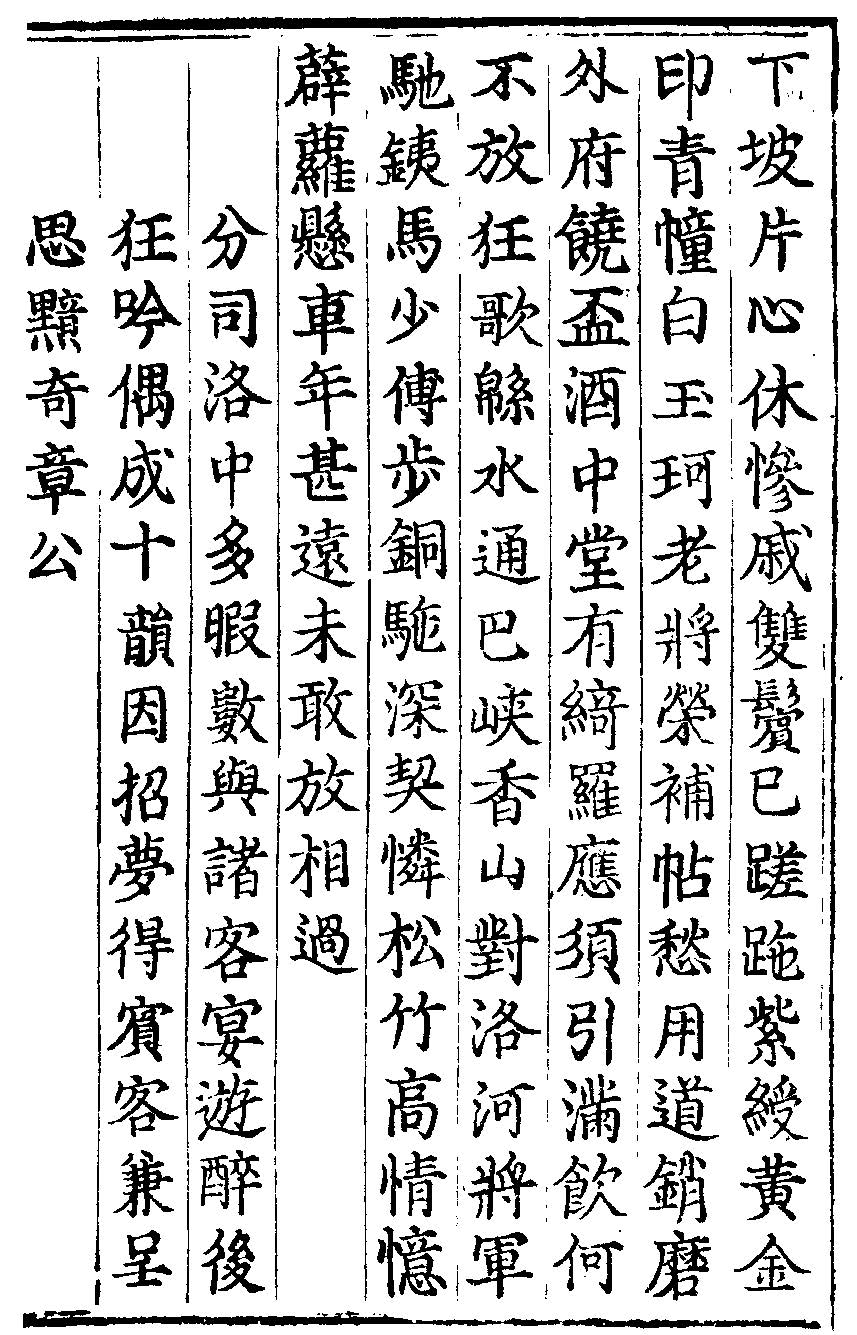 下坡片心休慘戚雙鬢已蹉跎紫綬黃金
印青幢白玉珂老將榮補帖愁用道銷磨
外府饒盃酒中堂有綺羅應須引滿飲何
不放狂歌緜水通巴峽香山對洛河將軍
馳鐵馬少傅步銅駞深契憐松竹高情憶
薜蘿懸車年甚遠未敢放相過
分司洛中多暇數與諸客宴遊醉後
狂吟偶成十韻因招夢得賓客兼呈
思黯奇章公